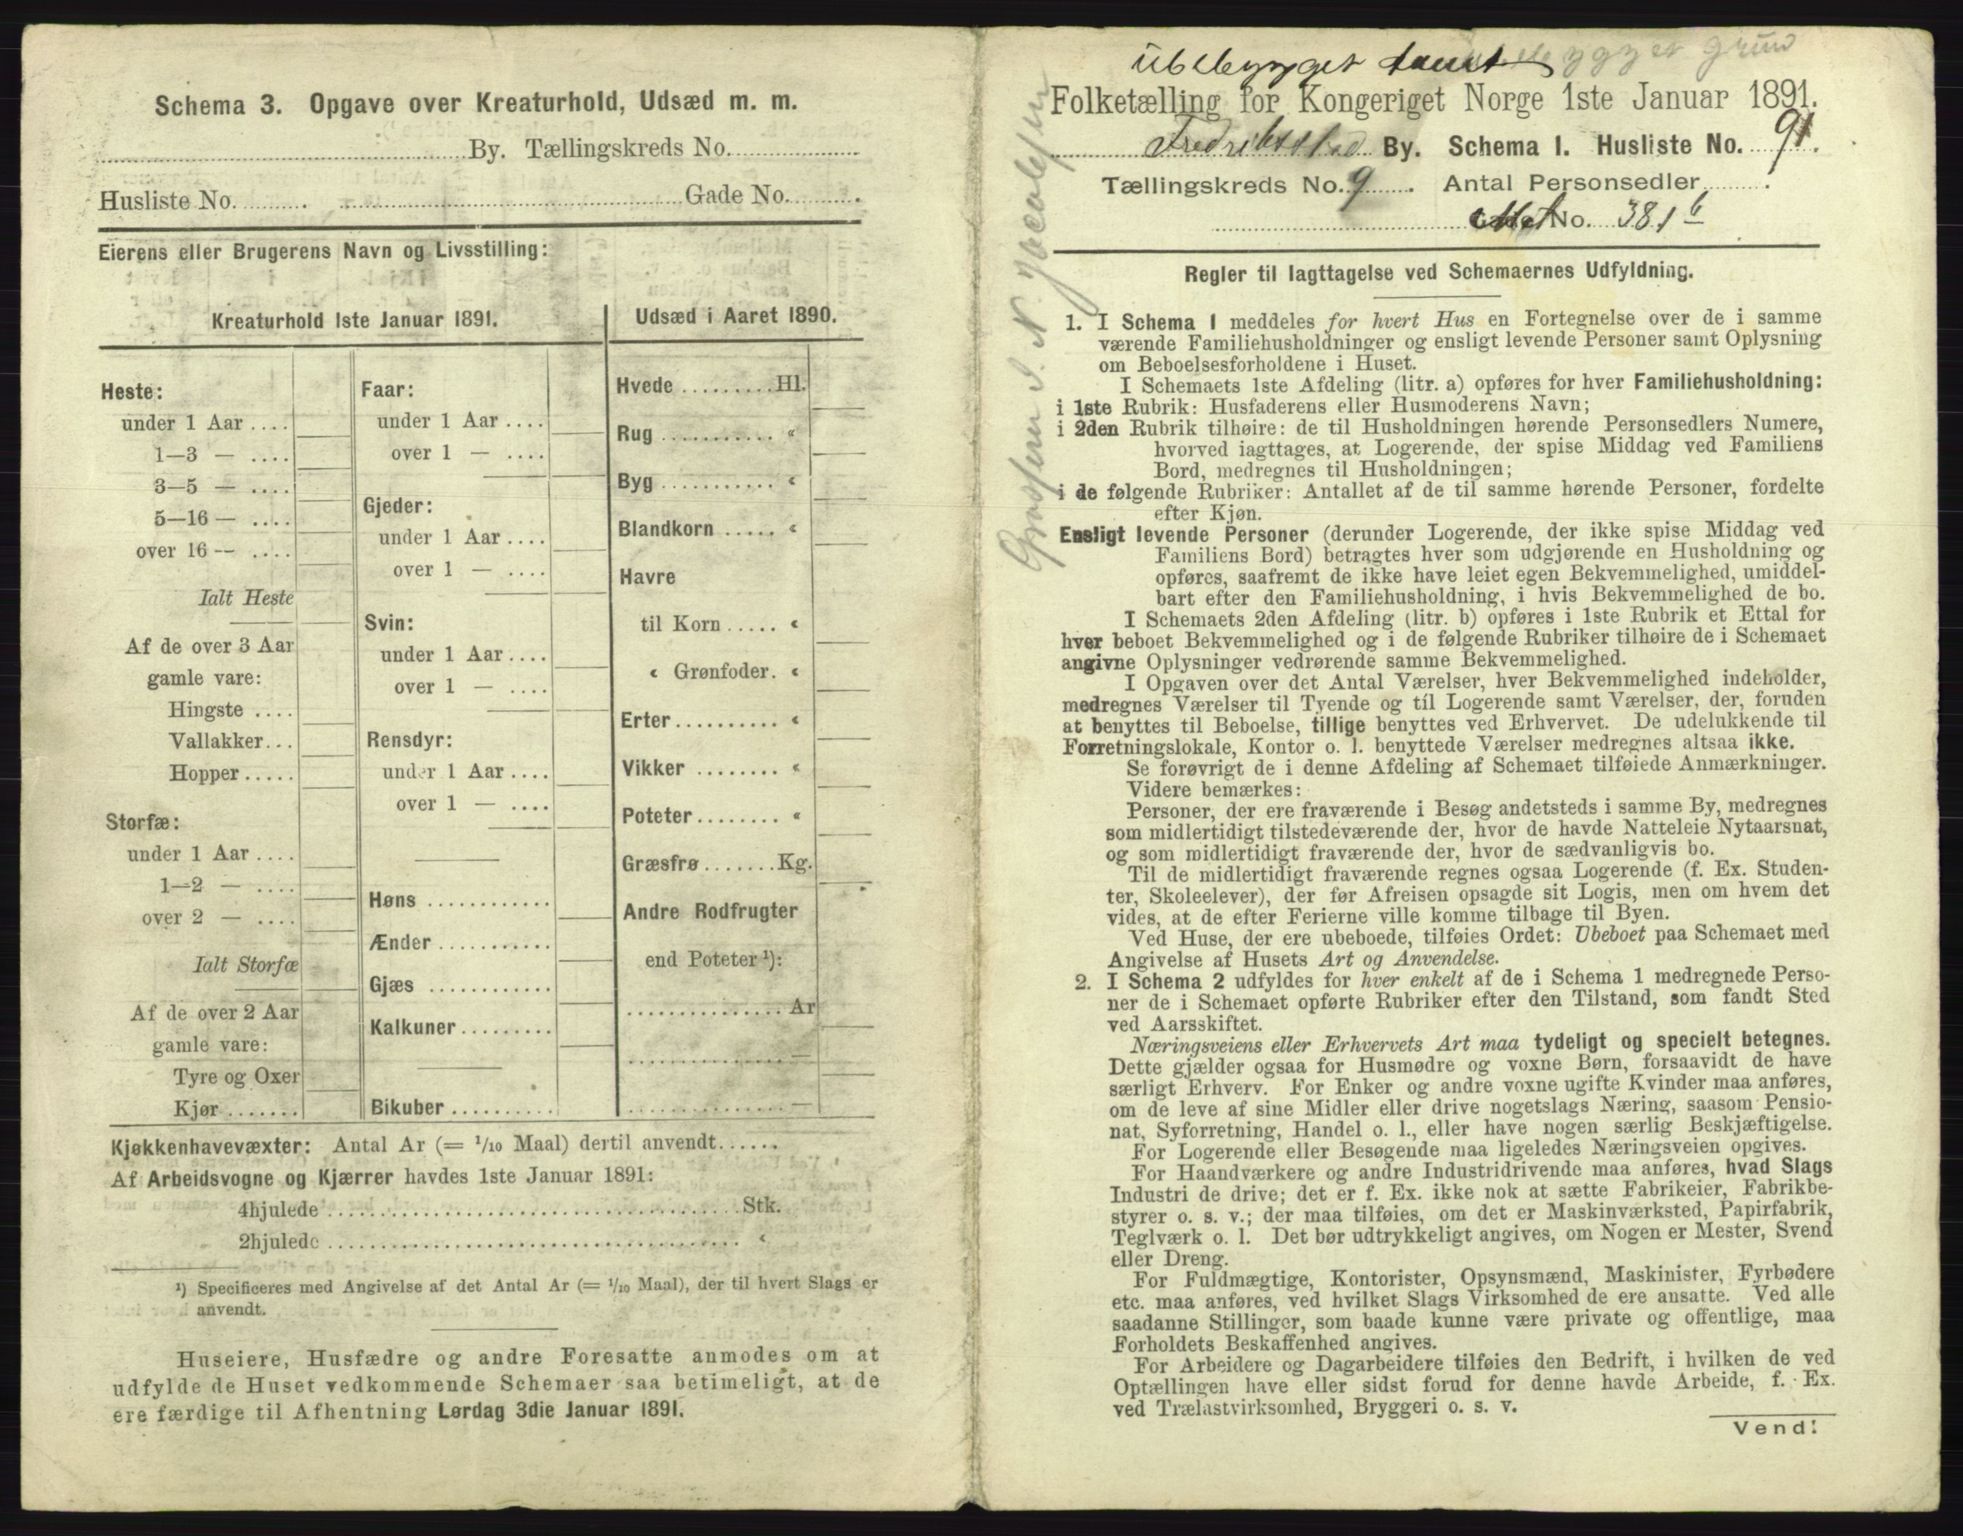 Schema 3. Opgave over Kreaturhold, Udsæd m. m.
By. Tællingskreds No.
Husliste No. Gade No.
Eierens eller Brugerens Navn og Livsstilling:
Kreaturhold 1ste Januar 1891.
Heste:
under 1 Aar ....
1—3 — ....
3—5 — ....
5—16 — ....
over 16 — ....
Ialt Heste
Af de over 3 Aar
gamle vare:
Hingste ....
Vallakker...
Hopper .....
Storfæ:
under 1 Aar ....
1—2 — ....
over 2 — ....
Ialt Storfæ
Af de over 2 Aar
gamle vare:
Tyre og Oxer
Kjør .......
Faar:
under 1 Aar ....
over 1 — ....
Gjeder:
under 1 Aar ....
over 1 — ....
Svin:
under 1 Aar ....
over 1 — ....
Rensdyr:
under 1 Aar ....
over 1 — ....
Høns ............
Ænder ...........
Gjæs ............
Kalkuner.........
Bikuber ..........
Udsæd i Aaret 1890.
Hvede .........Hl.
Rug ........... «
Byg ........... «
Blandkorn ..... «
Havre
til Korn ..... «
« Grønfoder. «
Erter .......... «
Vikker ........ «
Poteter ........ «
Græsfrø .......Kg.
Andre Rodfrugter
end Poteter ¹):
............... Ar
............... —
............... —
Kjøkkenhavevæxter: Antal Ar (= 1/10 Maal) dertil anvendt......
Af Arbeidsvogne og Kjærrer havdes 1ste Januar 1891:
4hjulede ........................................Stk.
2hjulede ........................................ «
¹) Specificeres med Angivelse af det Antal Ar (= 1/10 Maal), der til hvert Slags er
anvendt.
Huseiere, Husfædre og andre Foresatte anmodes om at
udfylde de Huset vedkommende Schemaer saa betimeligt, at de
ere færdige til Afhentning Lørdag 3die Januar 1891.
Ubebygget tomt
grund
Folketælling for Kongeriget Norge 1ste Januar 1891.
Fredriksstad By. Schema I. Husliste No. 91.
Tællingskreds No. 9. Antal Personsedler .
Mat No. 381 b
Regler til Iagttagelse ved Schemaernes Udfyldning.
1. I Schema 1 meddeles for hvert Hus en Fortegnelse over de i samme
værende Familiehusholdninger og ensligt levende Personer samt Oplysning
om Beboelsesforholdene i Huset.
I Schemaets 1ste Afdeling (litr. a) opføres for hver Familiehusholdning:
i 1ste Rubrik: Husfaderens eller Husmoderens Navn;
i 2den Rubrik tilhøire: de til Husholdningen hørende Personsedlers Numere,
hvorved iagttages, at Logerende, der spise Middag ved Familiens
Bord, medregnes til Husholdningen;
i de følgende Rubriker: Antallet af de til samme hørende Personer, fordelte
efter Kjøn.
Ensligt levende Personer (derunder Logerende, der ikke spise Middag ved
Familiens Bord) betragtes hver som udgjørende en Husholdning og
opføres, saafremt de ikke have leiet egen Bekvemmelighed, umiddel-
bart efter den Familiehusholdning, i hvis Bekvemmelighed de bo.
I Schemaets 2den Afdeling (litr. b) opføres i 1ste Rubrik et Ettal for
hver beboet Bekvemmelighed og i de følgende Rubriker tilhøire de i Schemaet
angivne Oplysninger vedrørende samme Bekvemmelighed.
I Opgaven over det Antal Værelser, hver Bekvemmelighed indeholder,
medregnes Værelser til Tyende og til Logerende samt Værelser, der, foruden
at benyttes til Beboelse, tillige benyttes ved Erhvervet. De udelukkende til
Forretningslokale, Kontor o. l. benyttede Værelser medregnes altsaa ikke.
Se forøvrigt de i denne Afdeling af Schemaet tilføiede Anmærkninger.
Videre bemærkes:
Personer, der ere fraværende i Besøg andetsteds i samme By, medregnes
som midlertidigt tilstedeværende der, hvor de havde Natteleie Nytaarsnat,
og som midlertidigt fraværende der, hvor de sædvanligvis bo.
Til de midlertidigt fraværende regnes ogsaa Logerende (f. Ex. Studen-
ter, Skoleelever), der før Afreisen opsagde sit Logis, men om hvem det
vides, at de efter Ferierne ville komme tilbage til Byen.
Ved Huse, der ere ubeboede, tilføies Ordet: Ubeboet paa Schemaet med
Angivelse af Husets Art og Anvendelse.
2. I Schema 2 udfyldes for hver enkelt af de i Schema 1 medregnede Perso-
ner de i Schemaet opførte Rubriker efter den Tilstand, som fandt Sted
ved Aarsskiftet.
Næringsveiens eller Erhvervets Art maa tydeligt og specielt betegnes.
Dette gjælder ogsaa for Husmødre og voxne Børn, forsaavidt de have
særligt Erhverv. For Enker og andre voxne ugifte Kvinder maa anføres,
om de leve af sine Midler eller drive nogetslags Næring, saasom Pensio-
nat, Syforretning, Handel o. l., eller have nogen særlig Beskjæftigelse.
For Logerende eller Besøgende maa ligeledes Næringsveien opgives.
For Haandværkere og andre Industridrivende maa anføres, hvad Slags
Industri de drive; det er f. Ex. ikke nok at sætte Fabrikeier, Fabrikbe-
styrer o. s. v.; der maa tilføies, om det er Maskinværksted, Papirfabrik,
Teglværk o. l. Det bør udtrykkeligt angives, om Nogen er Mester, Svend
eller Dreng.
For Fuldmægtige, Kontorister, Opsynsmænd, Maskinister, Fyrbødere
etc. maa anføres, ved hvilket Slags Virksomhed de ere ansatte. Ved alle
saadanne Stillinger, som baade kunne være private og offentlige, maa
Forholdets Beskaffenhed angives.
For Arbeidere og Dagarbeidere tilføies den Bedrift, i hvilken de ved
Optællingen have eller sidst forud for denne havde Arbeide, f. Ex.
ved Trælastvirksomhed, Bryggeri o. s. v.
Vend!